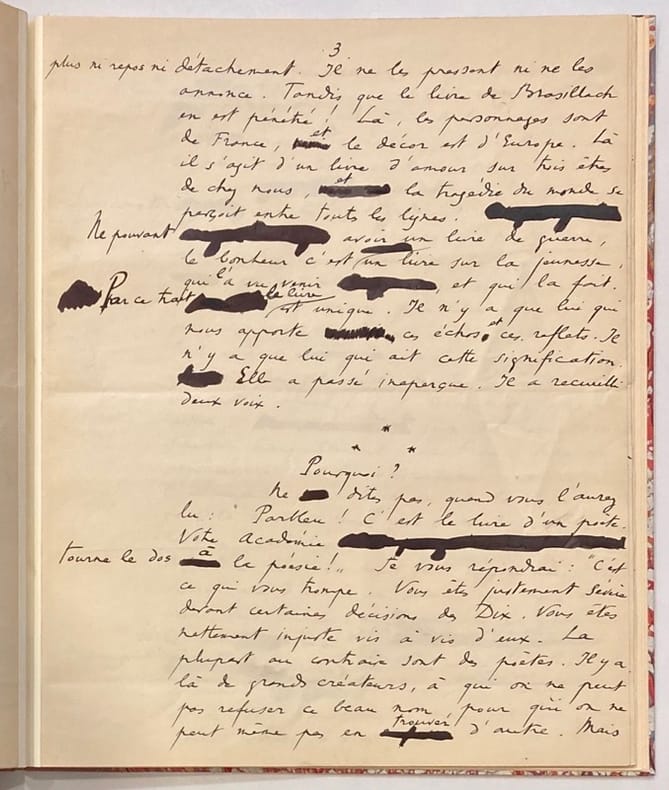 3
plus ni repos ni détachement. Il ne les pressent ni ne les
annonce. Tandis que le livre de Brasillach
en est pénétré ! Là, les personnages sont
de France, et le décor est d'Europe. Là
il s'agit d'un livre d'amour sur trois êtres
de chez nous, et la tragédie du monde se
perçoit entre toutes les lignes.
Ne pouvant avoir un livre de guerre,
le bonheur c'est un livre sur la jeunesse,
qui l'a vu venir et qui la fait.
Par ce trait le livre est unique. Il n'y a que lui qui
nous apporte ces échos et ces reflets. Il
n'y a que lui qui ait cette signification.
Elle a passé inaperçue. Il a recueilli
deux voix.
* * *
Pourquoi ?
Ne dites pas, quand vous l'aurez
lu : Parbleu ! C'est le livre d'un poète.
Votre Académie
tourne le dos à la poésie !" Je vous répondrai : "C'est
ce qui vous trompe. Vous êtes justement sévère
devant certaines décisions des Dix. Vous êtes
nettement injuste vis à vis d'eux. La
plupart au contraire sont des poètes. Il y a
là de grands créateurs, à qui on ne peut
pas refuser ce beau nom, pour qui on ne
peut même pas en trouver d'autre. Mais